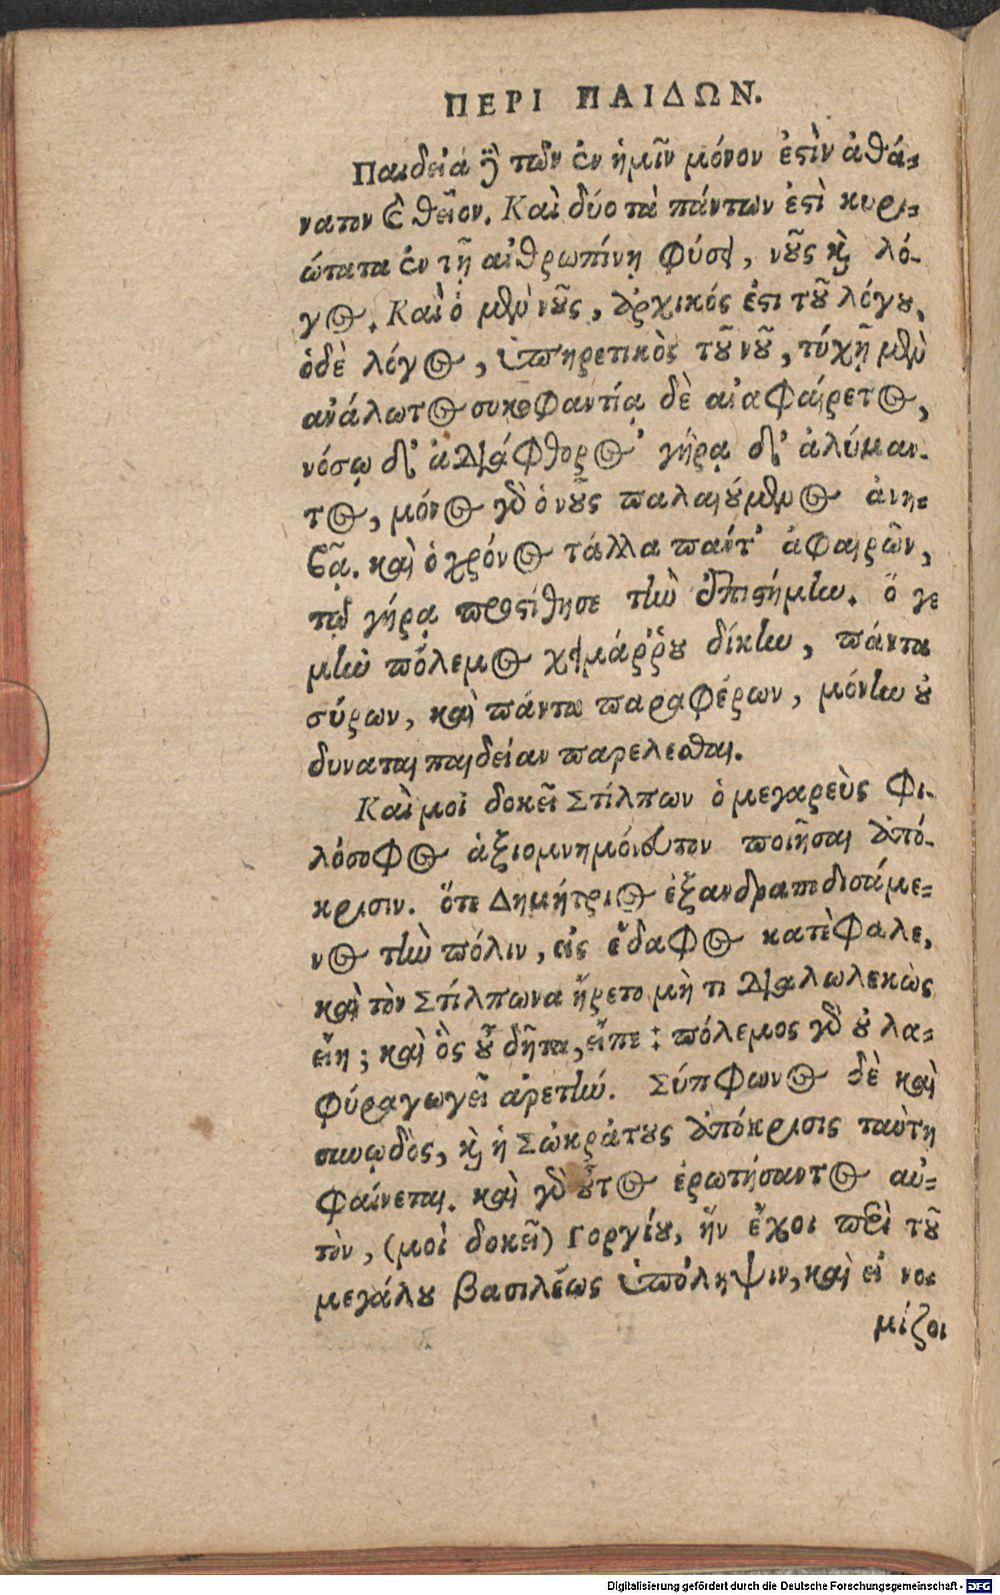 ΠΕΡΙ ΠΑΙΔΩΝ.
Παιδεία δὲ τῶν ἐν ἡμῖν μόνον ἐστὶν ἀθά-
νατον καὶ θεῖον. Καὶ δύο τὰ πάντων ἐστὶ κυρι-
ώτατα ἐν τῇ ἀνθρωπίνῃ φύσει, νοῦς καὶ λό-
γος. Καὶ ὁ μὲν νοῦς, ἀρχικός ἐστι τοῦ λόγου,
ὁ δὲ λόγος, ὑπηρετικὸς τοῦ νοῦ, τύχῃ μὲν
ἀνάλωτος συκοφαντίᾳ δὲ ἀναφαίρετος,
νόσῳ δ' ἀδιάφθορος γήρᾳ δ' ἀλύμαν-
τος, μόνος γὰρ ὁ νοῦς παλαιούμενος ἀνη-
βᾷ. καὶ ὁ χρόνος τἄλλα πάντ' ἀφαιρῶν,
τῷ γήρᾳ προστίθησι τὴν ἐπιστήμην. ὅ γε
μὴν πόλεμος χειμάῤῥου δίκην, πάντα
σύρων, καὶ πάντα παραφέρων, μόνην οὐ
δυναται παιδείαν παρελεσθαι.
Καὶ μοὶ δοκεῖ Στίλπων ὁ μεγαρεὺς Φι-
λόσοφος ἀξιομνημόνευτον ποιῆσαι ἀπό-
κρισιν. ὅτε Δημήτριος ἐξανδραποδισάμε-
νος τὴν πόλιν, εἰς ἔδαφος κατέβαλε,
καὶ τὸν Στίλπωνα ἤρετο μή τι διαλωλεκὼς
εἴη; καὶ ὃς οὐ δῆτα, εἶπε : πόλεμος γὰρ οὐ λα-
φύραγωγεῖ ἀρετήν. Σύμφωνος δὲ καὶ
συνῳδὸς, καὶ ἡ Σωκράτους ἀπόκρισις ταύτῃ
φαίνεται. καὶ γὰρ οὗτος ἐρωτήσαντος αὐ-
τὸν, (μοὶ δοκεῖ) Γοργίου, ἣν ἔχοι περὶ τοῦ
μεγάλου βασιλέως ὑπόληψιν, καὶ εἰ νο-
μίζοι
Digitalisierung gefördert durch die Deutsche Forschungsgemeinschaft - DFG